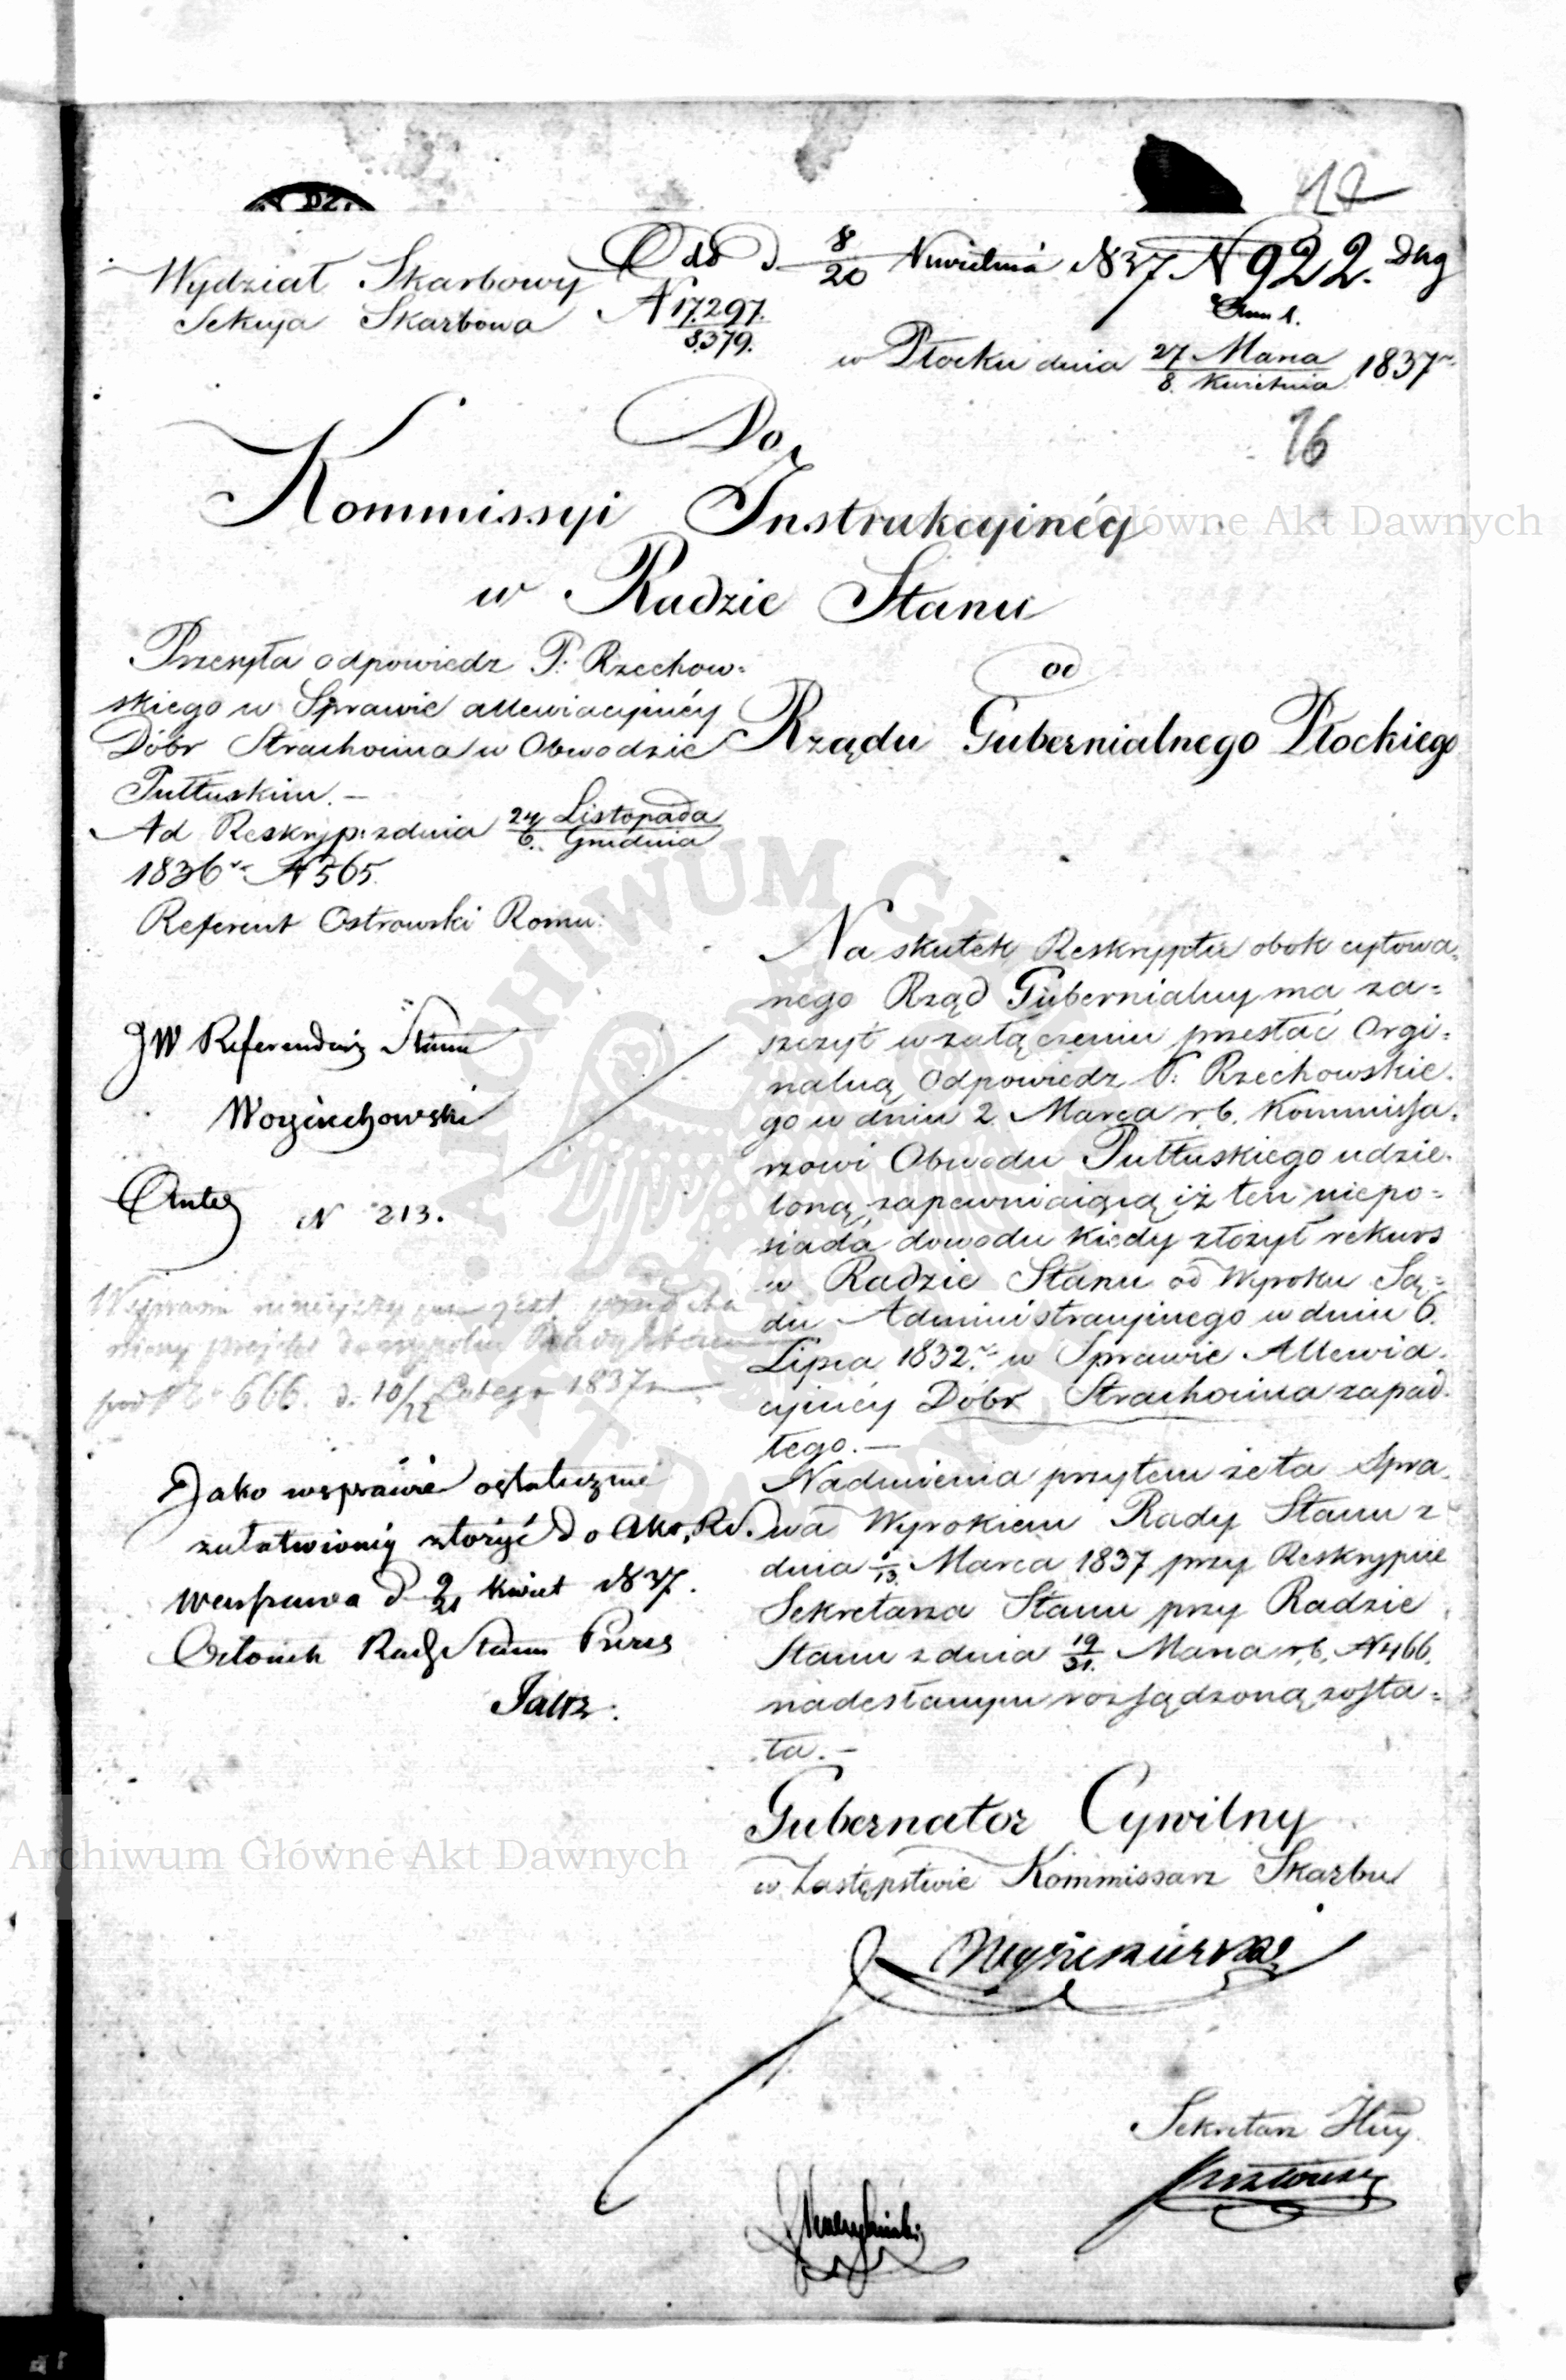 12
Wydział Skarbowy
Sekcya Skarbowa
N 17.297.
8.379.
8/20 Kwietnia 1837 N 922.
w Płocku dnia 27 Marca / 8. Kwietnia 1837
16
Do
Kommissyi Instrukcyinéy
w Radzie Stanu
od
Rządu Gubernialnego Płockiego
Przesyła odpowiedz P: Rzechow=
skiego w Sprawie allewiacyinéy
Dóbr Strachocina w Obwodzie
Pułtuskim. —
Ad Reskryp: z dnia 24 Listopada / 6. Grudnia
1836 N 565.
Referent Ostrowski Romu:
JW Referendarz Stanu
Woyciechowski
N 213.
666. d. 10/22 Lutego 1837
Jako w sprawie ostatecznie
załatwioney złożyć do Akt
Warszawa d 9/21 Kwiet 1837.
Członek Rady Stanu
Na skutek Reskryptu obok cytowa=
nego Rząd Gubernialny ma za=
szczyt w załączeniu przesłać Orgi=
nalną Odpowiedz P: Rzechowskie=
go w dniu 2 Marca r. b. Kommissa=
rzowi Obwodu Pułtuskiego udzie=
loną, zapewniaiącą iż ten niepo=
siada dowodu kiedy złożył rekurs
w Radzie Stanu od Wyroku Są=
du Administracyinego w dniu 6.
Lipca 1832 w Sprawie Allewia=
cyinéy Dóbr Strachocina zapad=
łego. —
Nadmienia przytem że ta Spra=
wa Wyrokiem Rady Stanu z
dnia 1/13. Marca 1837 przy Reskrypcie
Sekretarza Stanu przy Radzie
Stanu z dnia 19/31. Marca r. b. N 466.
nadesłanym rozsądzoną zosta=
ła. —
Gubernator Cywilny
w Zastępstwie Kommissarz Skarbu
Sekretarz
Archiwum Główne Akt Dawnych
Archiwum Główne Akt Dawnych